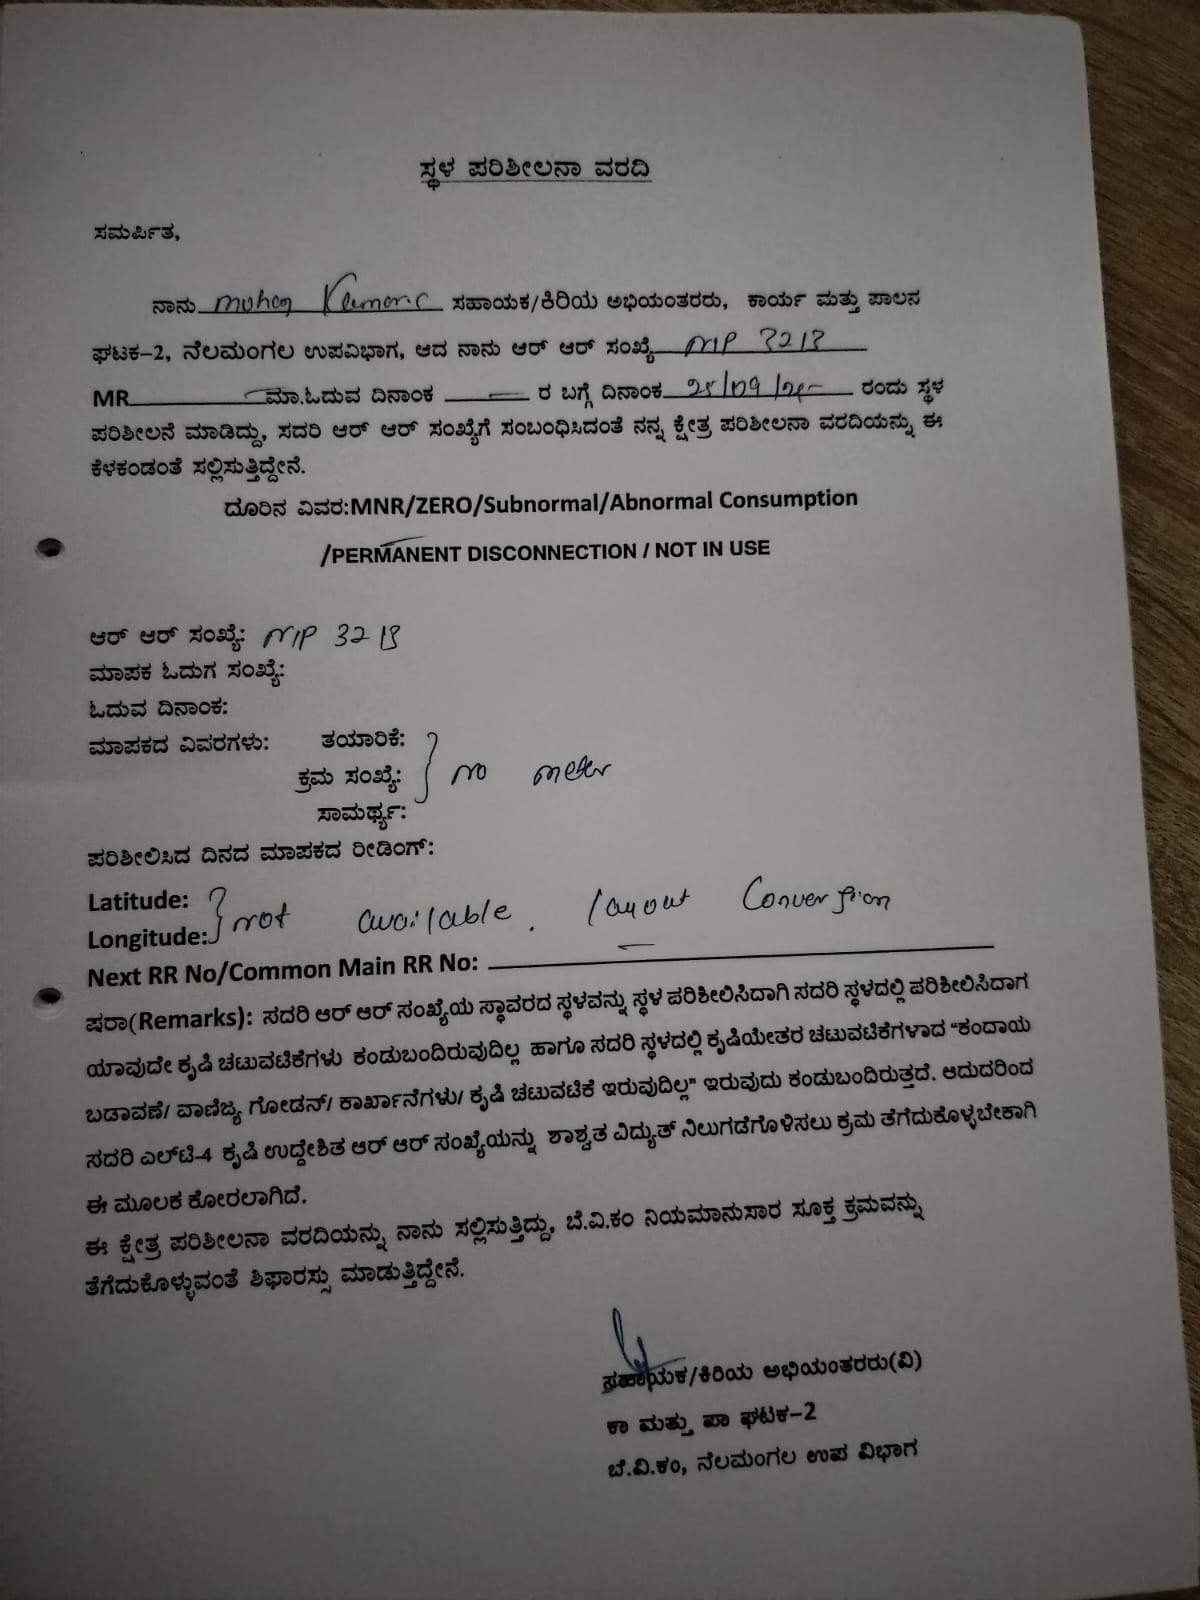 ಸ್ಥಳ ಪರಿಶೀಲನಾ ವರದಿ
ಸಮರ್ಪಿತ,
ನಾನು mohan Kumar.c ಸಹಾಯಕ/ಕಿರಿಯ ಅಭಿಯಂತರರು, ಕಾರ್ಯ ಮತ್ತು ಪಾಲನ
ಘಟಕ-2, ನೆಲಮಂಗಲ ಉಪವಿಭಾಗ, ಆದ ನಾನು ಆರ್ ಆರ್ ಸಂಖ್ಯೆ
MR ಮಾ.ಓದುವ ದಿನಾಂಕ ರ ಬಗ್ಗೆ ದಿನಾಂಕ 25/09/25 ರಂದು ಸ್ಥಳ
ಪರಿಶೀಲನೆ ಮಾಡಿದ್ದು, ಸದರಿ ಆರ್ ಆರ್ ಸಂಖ್ಯೆಗೆ ಸಂಬಂಧಿಸಿದಂತೆ ನನ್ನ ಕ್ಷೇತ್ರ ಪರಿಶೀಲನಾ ವರದಿಯನ್ನು ಈ
ಕೆಳಕಂಡಂತೆ ಸಲ್ಲಿಸುತ್ತಿದ್ದೇನೆ.
ದೂರಿನ ವಿವರ:MNR/ZERO/Subnormal/Abnormal Consumption
/PERMANENT DISCONNECTION / NOT IN USE
ಆರ್ ಆರ್ ಸಂಖ್ಯೆ:
ಮಾಪಕ ಓದುಗ ಸಂಖ್ಯೆ:
ಓದುವ ದಿನಾಂಕ:
ಮಾಪಕದ ವಿವರಗಳು: ತಯಾರಿಕೆ:
ಕ್ರಮ ಸಂಖ್ಯೆ: no meter
ಸಾಮರ್ಥ್ಯ:
ಪರಿಶೀಲಿಸಿದ ದಿನದ ಮಾಪಕದ ರೀಡಿಂಗ್:
Latitude:
Longitude: not available. layout Conversion
Next RR No/Common Main RR No:
ಷರಾ(Remarks): ಸದರಿ ಆರ್ ಆರ್ ಸಂಖ್ಯೆಯ ಸ್ಥಾವರದ ಸ್ಥಳವನ್ನು ಸ್ಥಳ ಪರಿಶೀಲಿಸಿದಾಗಿ ಸದರಿ ಸ್ಥಳದಲ್ಲಿ ಪರಿಶೀಲಿಸಿದಾಗ
ಯಾವುದೇ ಕೃಷಿ ಚಟುವಟಿಕೆಗಳು ಕಂಡುಬಂದಿರುವುದಿಲ್ಲ ಹಾಗೂ ಸದರಿ ಸ್ಥಳದಲ್ಲಿ ಕೃಷಿಯೇತರ ಚಟುವಟಿಕೆಗಳಾದ "ಕಂದಾಯ
ಬಡಾವಣೆ/ ವಾಣಿಜ್ಯ ಗೋಡನ್/ ಕಾರ್ಖಾನೆಗಳು/ ಕೃಷಿ ಚಟುವಟಿಕೆ ಇರುವುದಿಲ್ಲ" ಇರುವುದು ಕಂಡುಬಂದಿರುತ್ತದೆ. ಆದುದರಿಂದ
ಸದರಿ ಎಲ್‌ಟಿ-4 ಕೃಷಿ ಉದ್ದೇಶಿತ ಆರ್ ಆರ್ ಸಂಖ್ಯೆಯನ್ನು ಶಾಶ್ವತ ವಿದ್ಯುತ್ ನಿಲುಗಡೆಗೊಳಿಸಲು ಕ್ರಮ ತೆಗೆದುಕೊಳ್ಳಬೇಕಾಗಿ
ಈ ಮೂಲಕ ಕೋರಲಾಗಿದೆ.
ಈ ಕ್ಷೇತ್ರ ಪರಿಶೀಲನಾ ವರದಿಯನ್ನು ನಾನು ಸಲ್ಲಿಸುತ್ತಿದ್ದು, ಬೆ.ವಿ.ಕಂ ನಿಯಮಾನುಸಾರ ಸೂಕ್ತ ಕ್ರಮವನ್ನು
ತೆಗೆದುಕೊಳ್ಳುವಂತೆ ಶಿಫಾರಸ್ಸು ಮಾಡುತ್ತಿದ್ದೇನೆ.
ಸಹಾಯಕ/ಕಿರಿಯ ಅಭಿಯಂತರರು(ವಿ)
ಕಾ ಮತ್ತು ಪಾ ಘಟಕ-2
ಬೆ.ವಿ.ಕಂ, ನೆಲಮಂಗಲ ಉಪ ವಿಭಾಗ